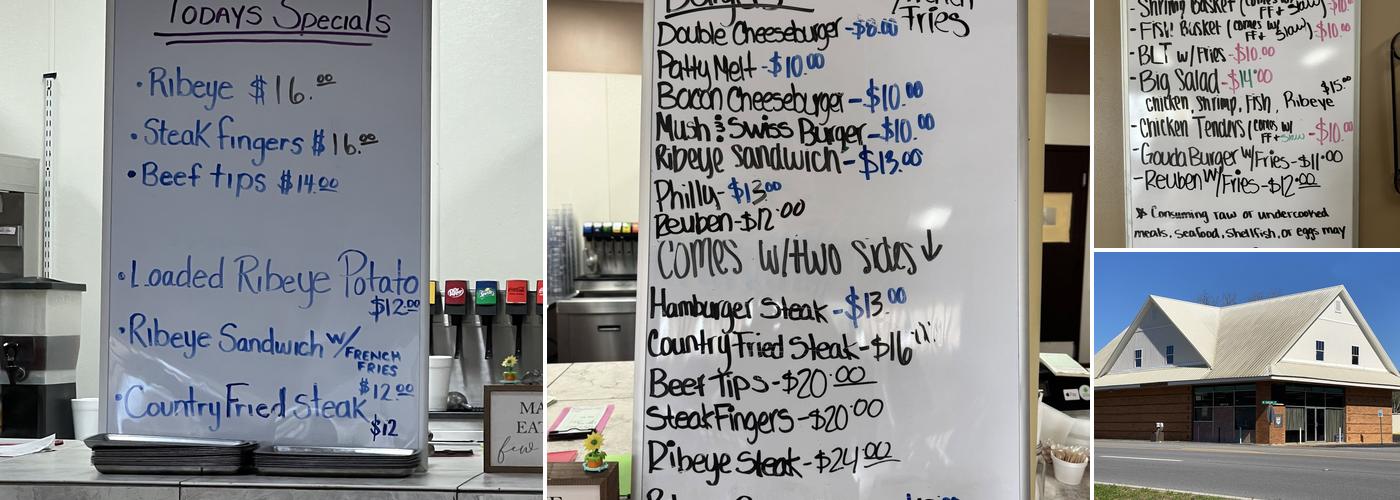 TODAYS Specials
• Ribeye $16.00
• Steak fingers $16.00
• Beef tips $14.00
• Loaded Ribeye Potato
$12.00
• Ribeye Sandwich w/
FRENCH
FRIES
$12.00
• Country Fried Steak
$12
MA
EAT
few
Fries
Double Cheeseburger - $8.00
Patty Melt - $10.00
Bacon Cheeseburger - $10.00
Mush & Swiss Burger - $10.00
Ribeye Sandwich - $13.00
Philly - $13.00
Reuben - $12.00
Comes w/two sides ↓
Hamburger Steak - $13.00
Country Fried Steak - $16
Beef Tips - $20.00
Steak Fingers - $20.00
Ribeye Steak - $24.00
- Shrimp Basket (comes w/ FF + Slaw) $10.00
- Fish Basket (comes w/ FF + Slaw) - $10.00
- BLT w/Fries - $10.00
- Big Salad - $14.00
chicken, shrimp, Fish, Ribeye $15.00
- Chicken Tenders (comes w/ FF + Slaw - $10.00
- Gouda Burger w/Fries - $11.00
- Reuben w/Fries - $12.00
* Consuming raw or undercooked
meats, seafood, shellfish, or eggs may